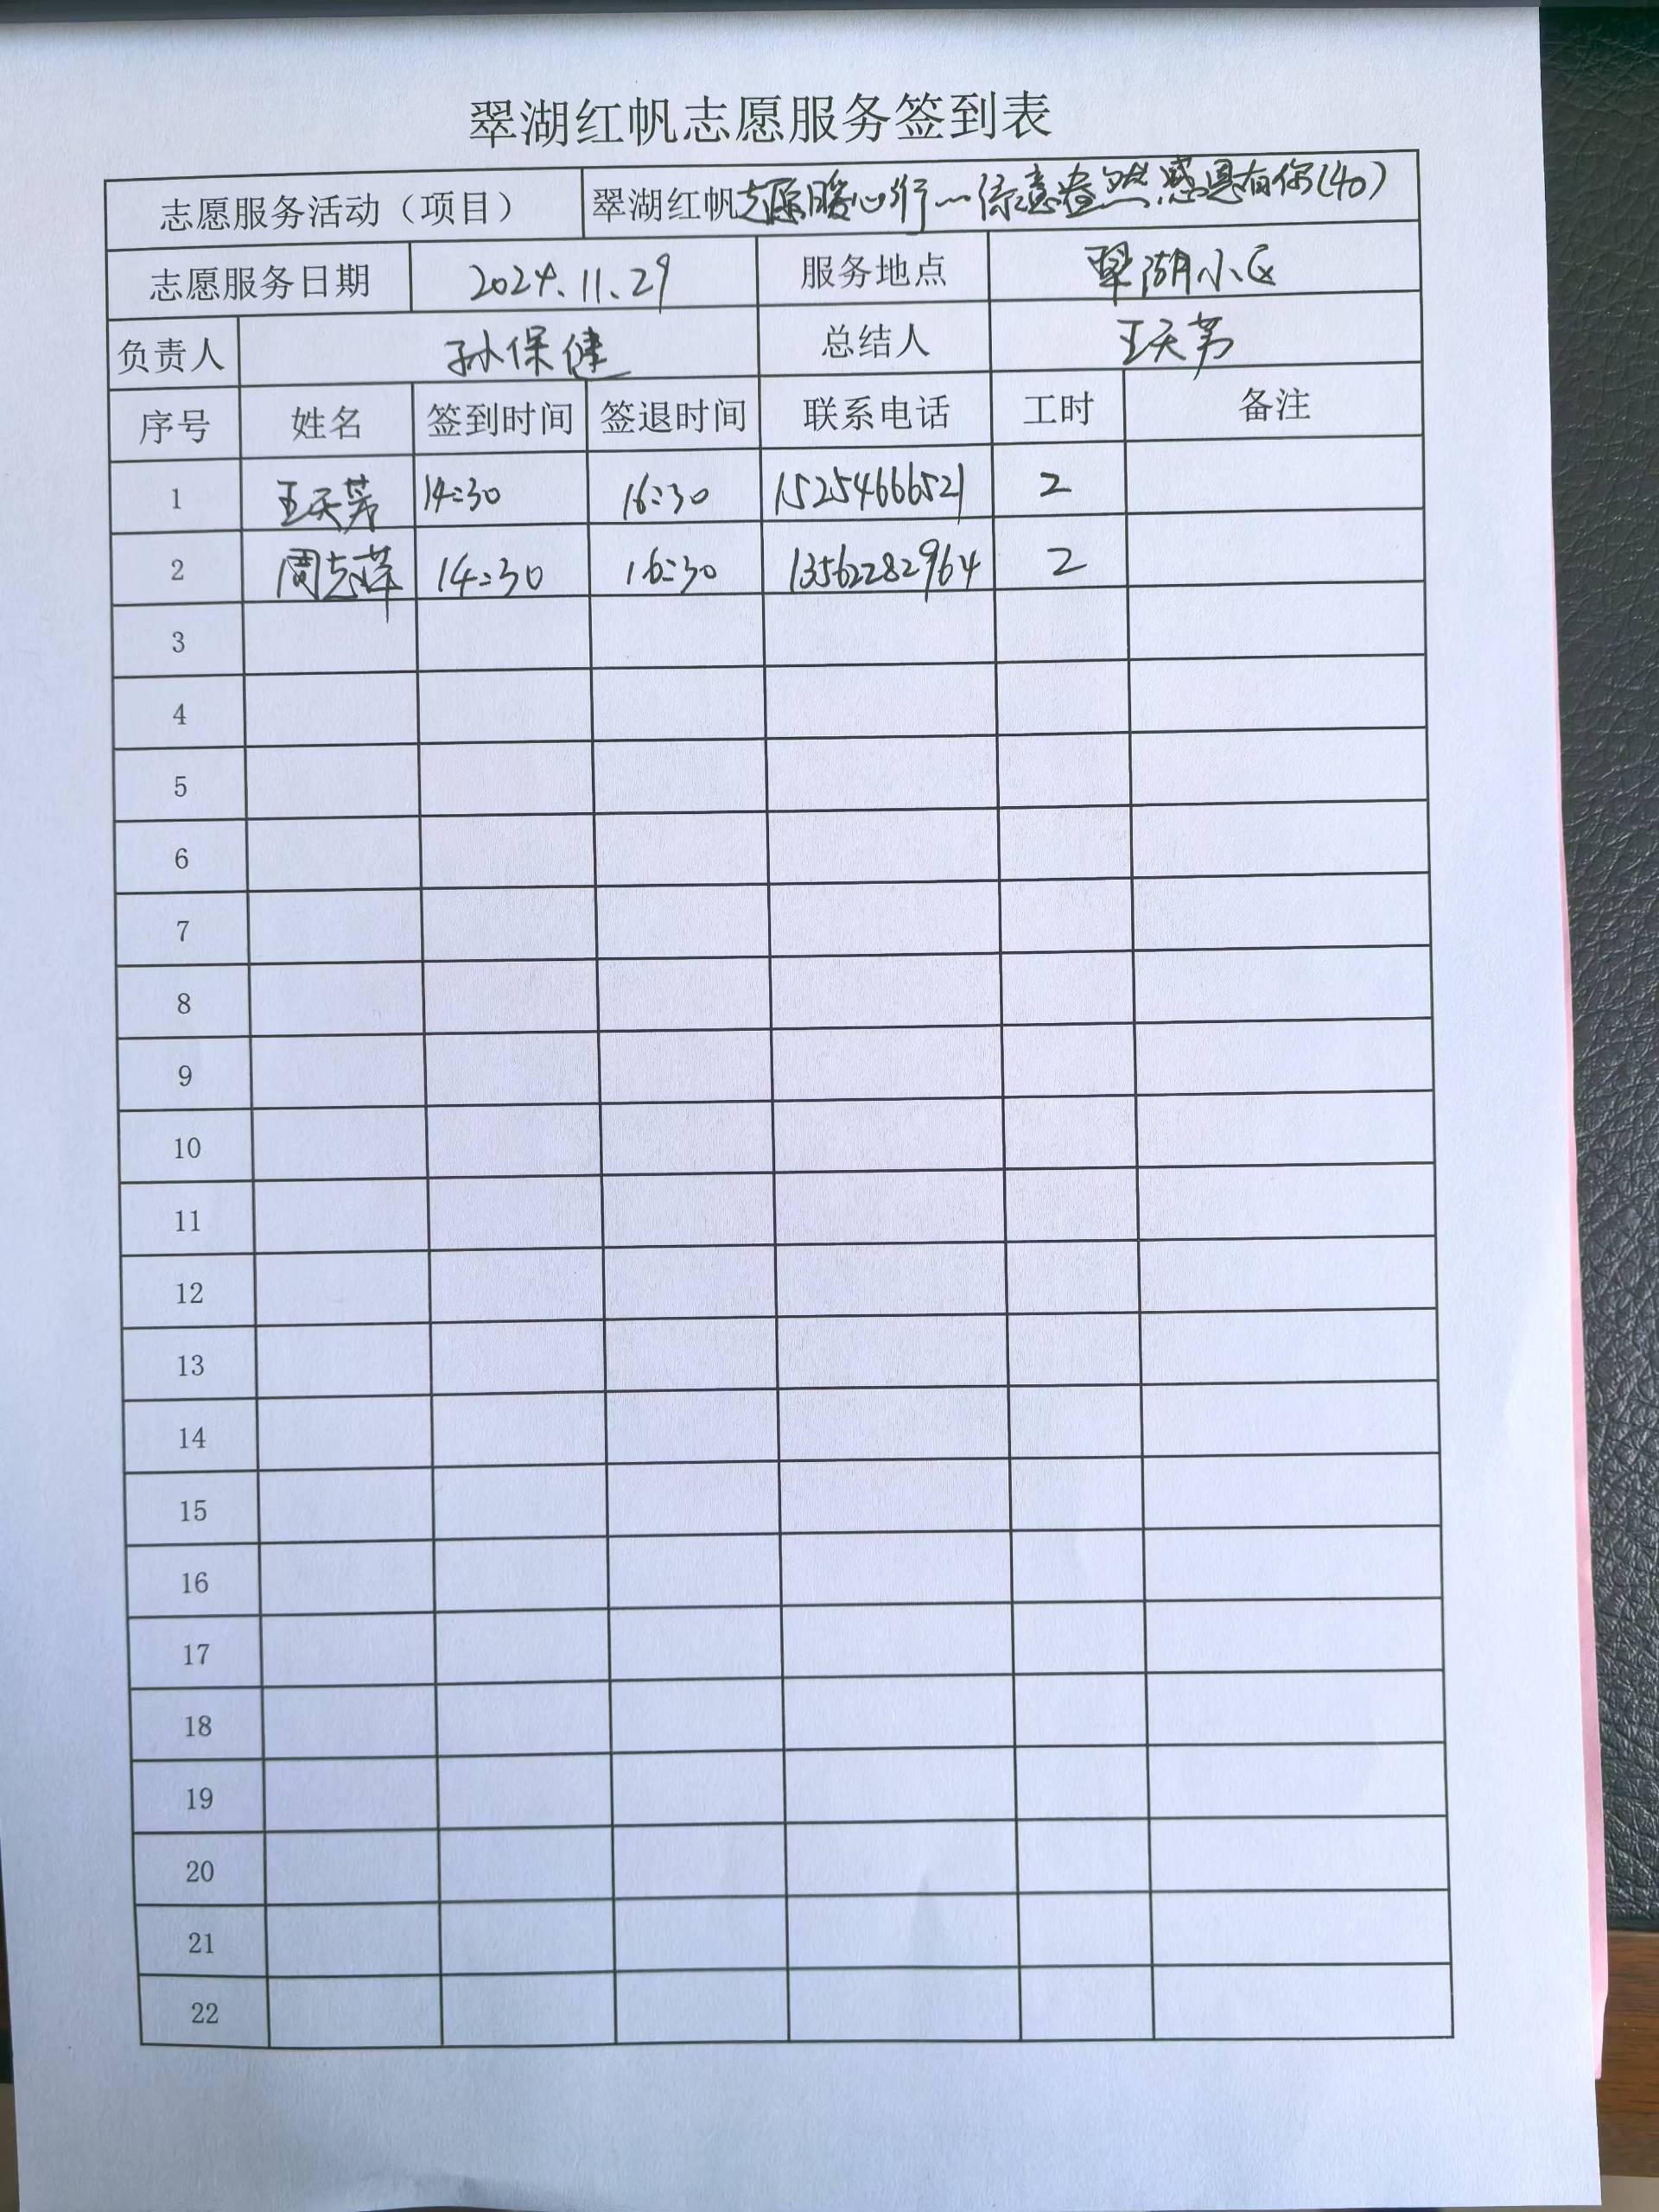 翠湖红帆志愿服务签到表
志愿服务活动（项目） 翠湖红帆志愿暖心行一绿意盎然感恩有你(40)
志愿服务日期 2024.11.29 服务地点 翠湖小区
负责人 孙保健 总结人 王天芳
序号 姓名 签到时间 签退时间 联系电话 工时 备注
1 王天芳 14:30 16:30 15254666521 2
2 周志萍 14:30 16:30 13562282964 2
3
4
5
6
7
8
9
10
11
12
13
14
15
16
17
18
19
20
21
22